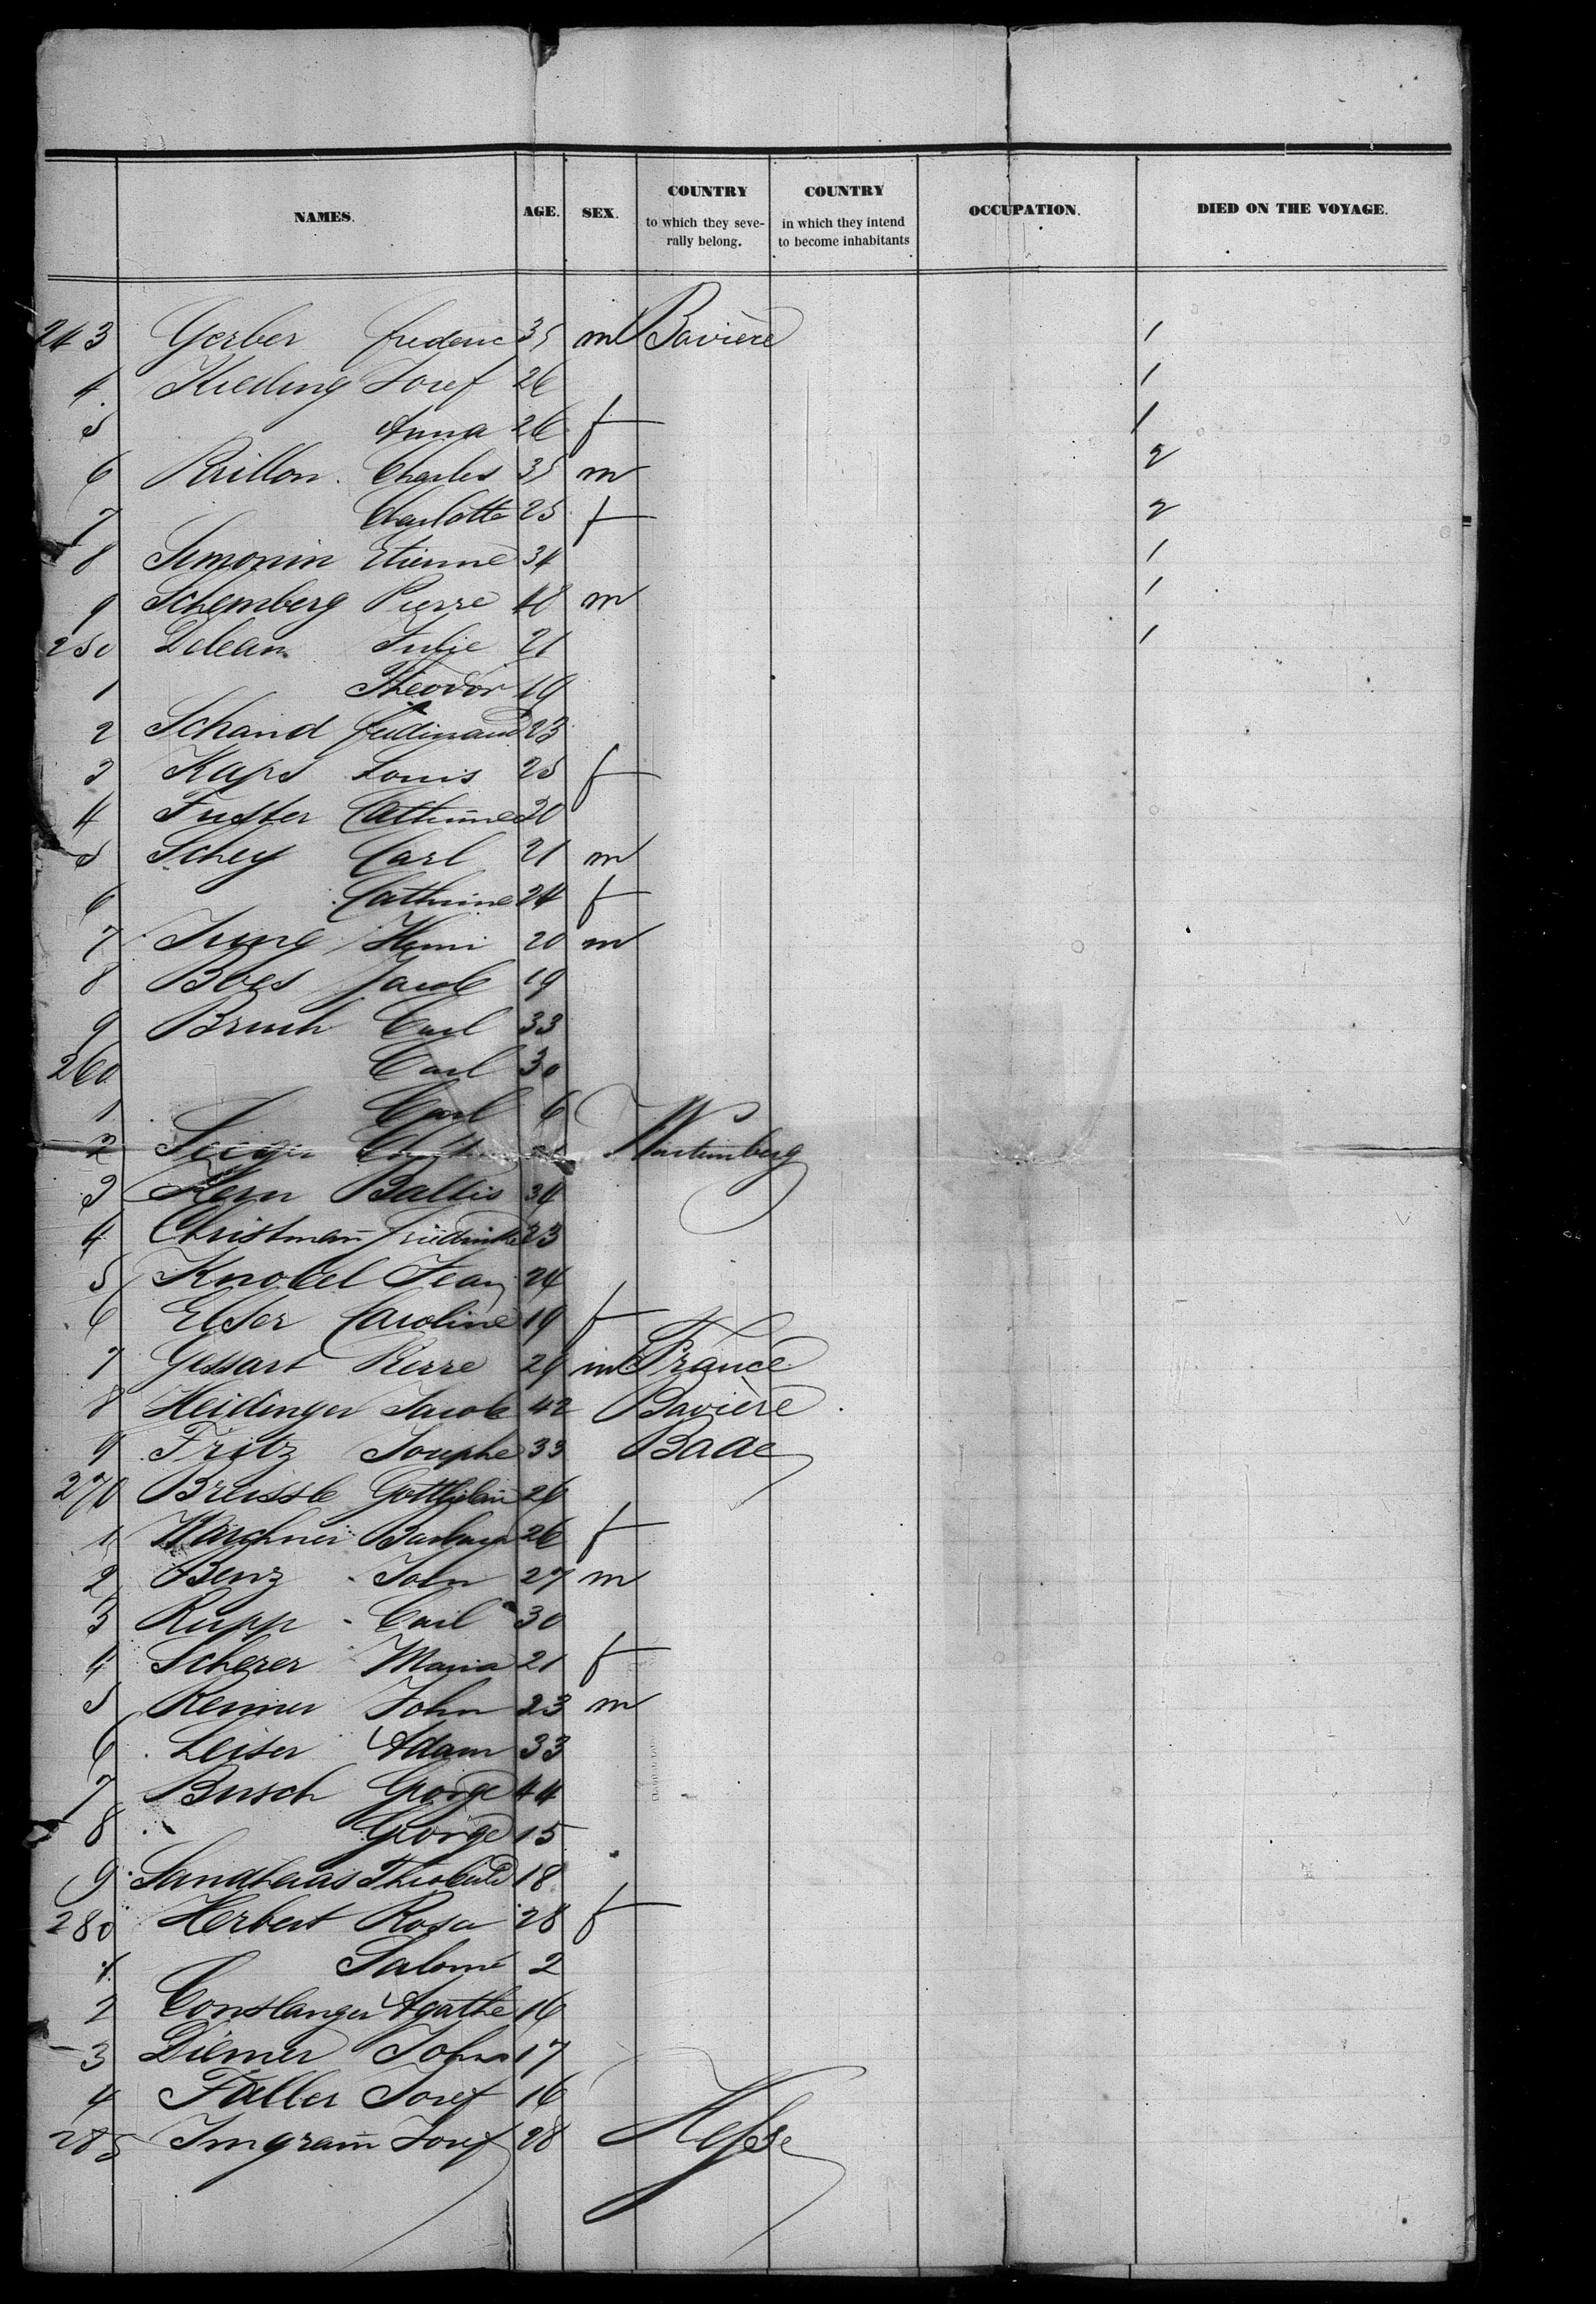 NAMES. AGE. SEX. COUNTRY to which they severally belong. COUNTRY in which they intend to become inhabitants OCCUPATION. DIED ON THE VOYAGE.
243 Gerber frederic 35 m Bavière 1
4 Kieding Josef 26 1
5 Anna 26 f 1
6 Rrillon Charles 35 m 2
7 Charlotte 25 f 2
8 Simonin Etienne 34 1
9 Schemberg Pierre 48 m 1
250 Delean Julie 21 1
1 Theodor 19
2 Schand ferdinand 23
3 Kaps Louis 25 f
4 Fuster Cathrine 20
5 Schey Carl 21 m
6 Cathrine 24 f
7 Jung Henri 20 m
8 Boes Jacob 19
9 Bruch Carl 33
260 Carl 30
1 Carl 6
2 Wurtemberg
3 Kern Baltis 34
4 Christman 23
5 Knobel Jean 24
6 Elser Caroline 19 f
7 Gessart Pierre 29 m France
8 Heidinger Jacob 42 Bavière
9 Fritz Josephe 33 Bade
270 Breissle 26
1 Barbara 26 f
2 Benz John 27 m
3 Rupp Carl 30
4 Scherer Maria 21 f
5 Renner John 23 m
6 Leiser Adam 33
7 Busch George 44
8 George 15
9 Sandhaas Theobald 18
280 Herbert Rosa 28 f
1 Salome 2
2 Constanger Agathe 16
3 Diemer John 17
4 Faller Josef 16
285 Ingram Josef 28 Hesse